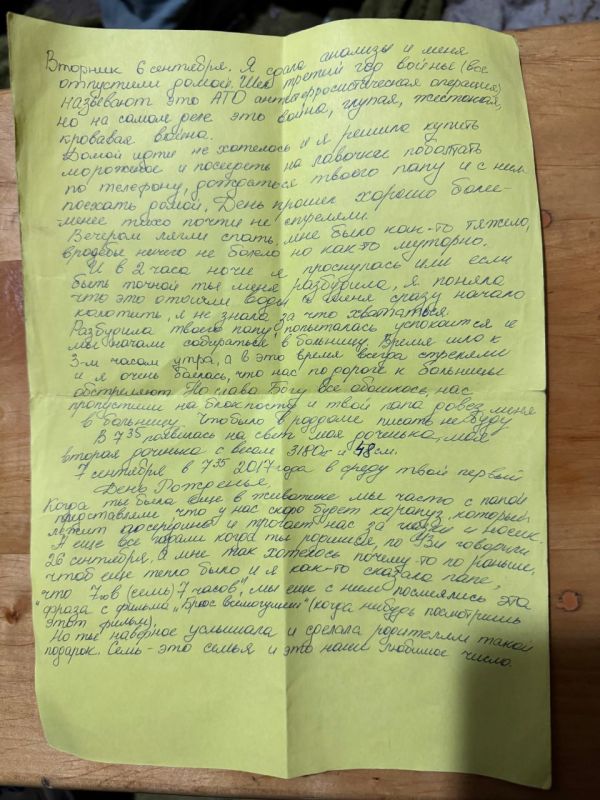 Вторник 6 сентября. Я сдала анализы и меня
отпустили домой. Шел третий год войны (все
называют это АТО антитеррористическая операция)
но на самом деле это война, глупая, жестокая,
кровавая война.
Домой идти не хотелось и я решила купить
мороженое и посидеть на лавочке поболтать
по телефону, дождаться твоего папу и с ним
поехать домой. День прошел хорошо более-
менее тихо почти не стреляли.
Вечером легли спать, мне было как-то тяжело,
вроде бы ничего не болело но как-то муторно.
И в 2 часа ночи я проснулась или если
быть точной ты меня разбудила, я поняла
что это отошли воды и меня сразу начало
колотить, я не знала за что хвататься.
Разбудила твоего папу, попыталась успокоится и
мы начали собираться в больницу. Время шло к
3-м часам утра, а в это время всегда стреляли
и я очень боялась, что нас по дороге к больницы
обстреляют. Но слава Богу все обошлось, нас
пропустили на блокпосту и твой папа довез меня
в больницу. Что было в роддоме писать не буду
В 7 35 появилась на свет моя доченька, моя
вторая доченька с весом 3180г и 48 см.
7 сентября в 7 35 2017 года в среду твой первый
День Рожденья.
Когда ты была еще в животике мы часто с папой
представляли что у нас скоро будет карапуз, который
лежит посередине и трогает нас за щечки и носик.
А еще все гадали когда ты родишься, по УЗИ говорили
26 сентября. А мне так хотелось почему-то по раньше,
чтоб еще тепло было и я как-то сказала папе,
"что 7го в (семь) 7 часов", мы еще с ним посмеялись эта
фраза с фильма "Брюс всемогущий" (когда нибудь посмотришь
этот фильм).
Но ты наверное услышала и сделала родителям такой
подарок. Семь - это семья и это наше любимое число.